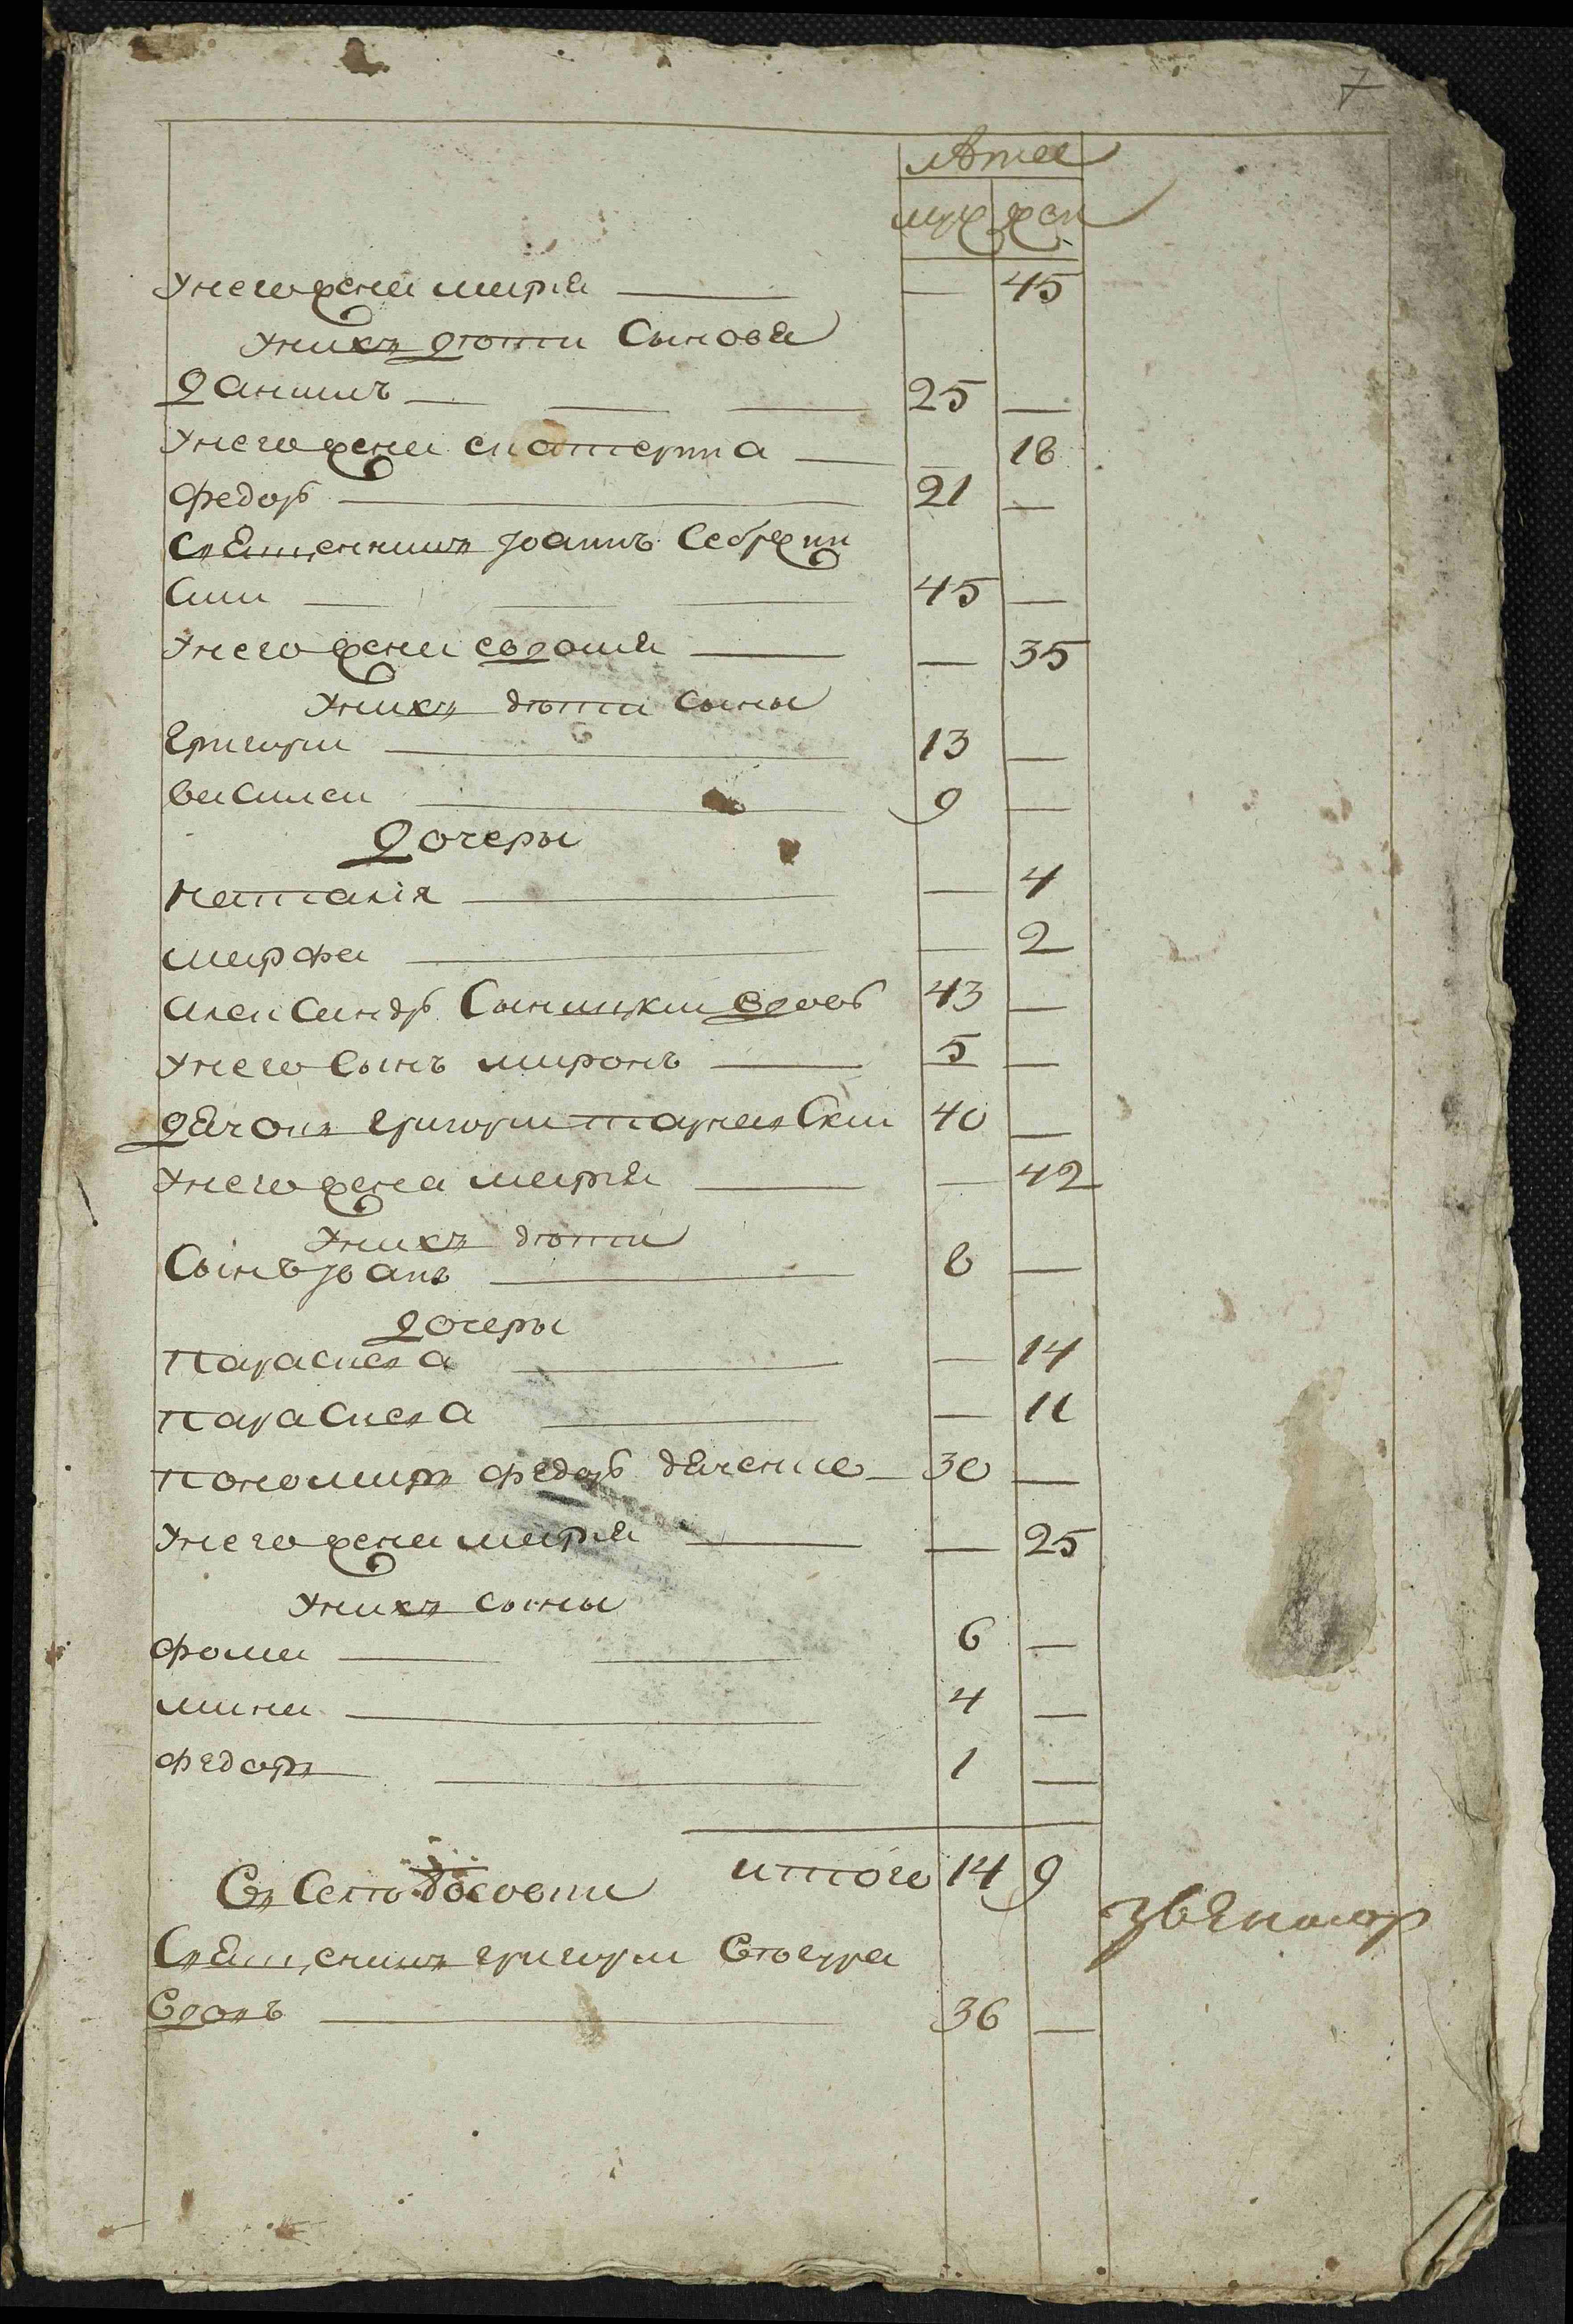 7
Лѣта
муж жен
Унего жена мария — 45
Унихъ дѣти Сыновя
Даниилъ 25 —
Унего жена екатерина — 18
Федоръ 21 —
Священникъ Иоаннъ
45 —
Унего жена евдокия — 35
Унихъ дѣти сыны
Григори 13 —
василеи 9 —
Дочеры
наталія — 4
марфа — 2
александръ вдовъ 43 —
Унего Сынъ миронъ 5 —
Дячокъ григори тарнавски 40 —
Унего жена мария — 42
Унихъ дѣти
Сынъ Иоанъ 8 —
Дочеры
параскева — 14
параскева — 11
пономаръ федоръ дяченко 30 —
Унего жена мария — 25
Унихъ сыны
фома 6 —
мина 4 —
федоръ 1 —
итого 14 9
Въ Селѣ
Священникъ григори
Вдовъ 36 —